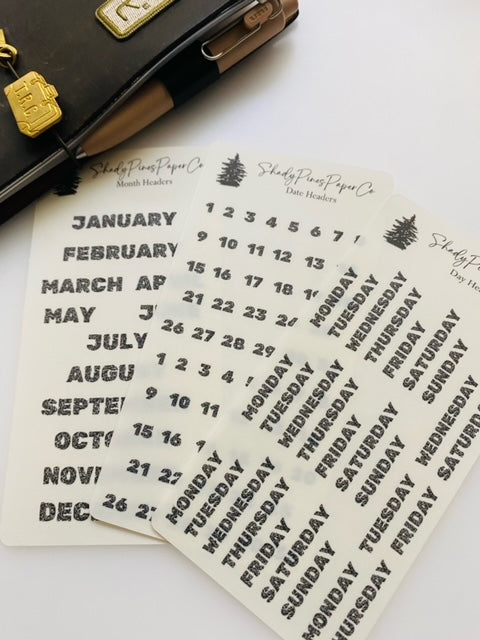 ShadyPinesPaperCo
Month Headers
JANUARY
FEBRUARY
MARCH AP
MAY J
JULY
AUGU
SEPTE
OCTO
NOV
DEC
ShadyPinesPaperCo
Date Headers
1 2 3 4 5 6 7
9 10 11 12 13
15 16 17 18
21 22 23 24
26 27 28 29
1 2 3 4
9 10 11
15 16
21 22
26 2
Shady
Day He
MONDAY
TUESDAY
WEDNESDAY
THURSDAY
FRIDAY
SATURDAY
SUNDAY
MONDAY
TUESDAY
WEDNESDAY
THURSDAY
FRIDAY
SATURDAY
SUNDAY
MONDAY
TUESDAY
WEDNESDAY
THURSDAY
FRIDAY
SATURDAY
SUNDAY
MONDAY
TUESDAY
WEDNESDAY
THURSDAY
FRIDAY
SATURDAY